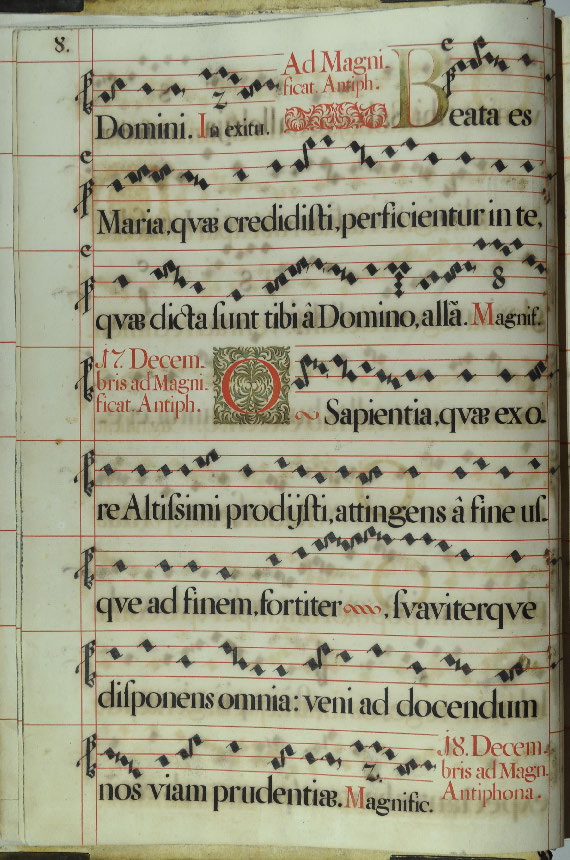 8.
Ad Magni
ficat. Antiph.
Domini. In exitu. Beata es
Maria, qvæ credidiſti, perficientur in te,
qvæ dicta ſunt tibi â Domino, allã. Magnif.
8
17. Decem.
bris ad Magni.
ficat. Antiph.
O Sapientia, qvæ ex o.
re Altiſsimi prodijſti, attingens â fine uſ.
qve ad finem, fortiter, ſvaviterqve
diſponens omnia: veni ad docendum
nos viam prudentiæ. Magnific.
2.
18. Decem.
bris ad Magn.
Antiphona.